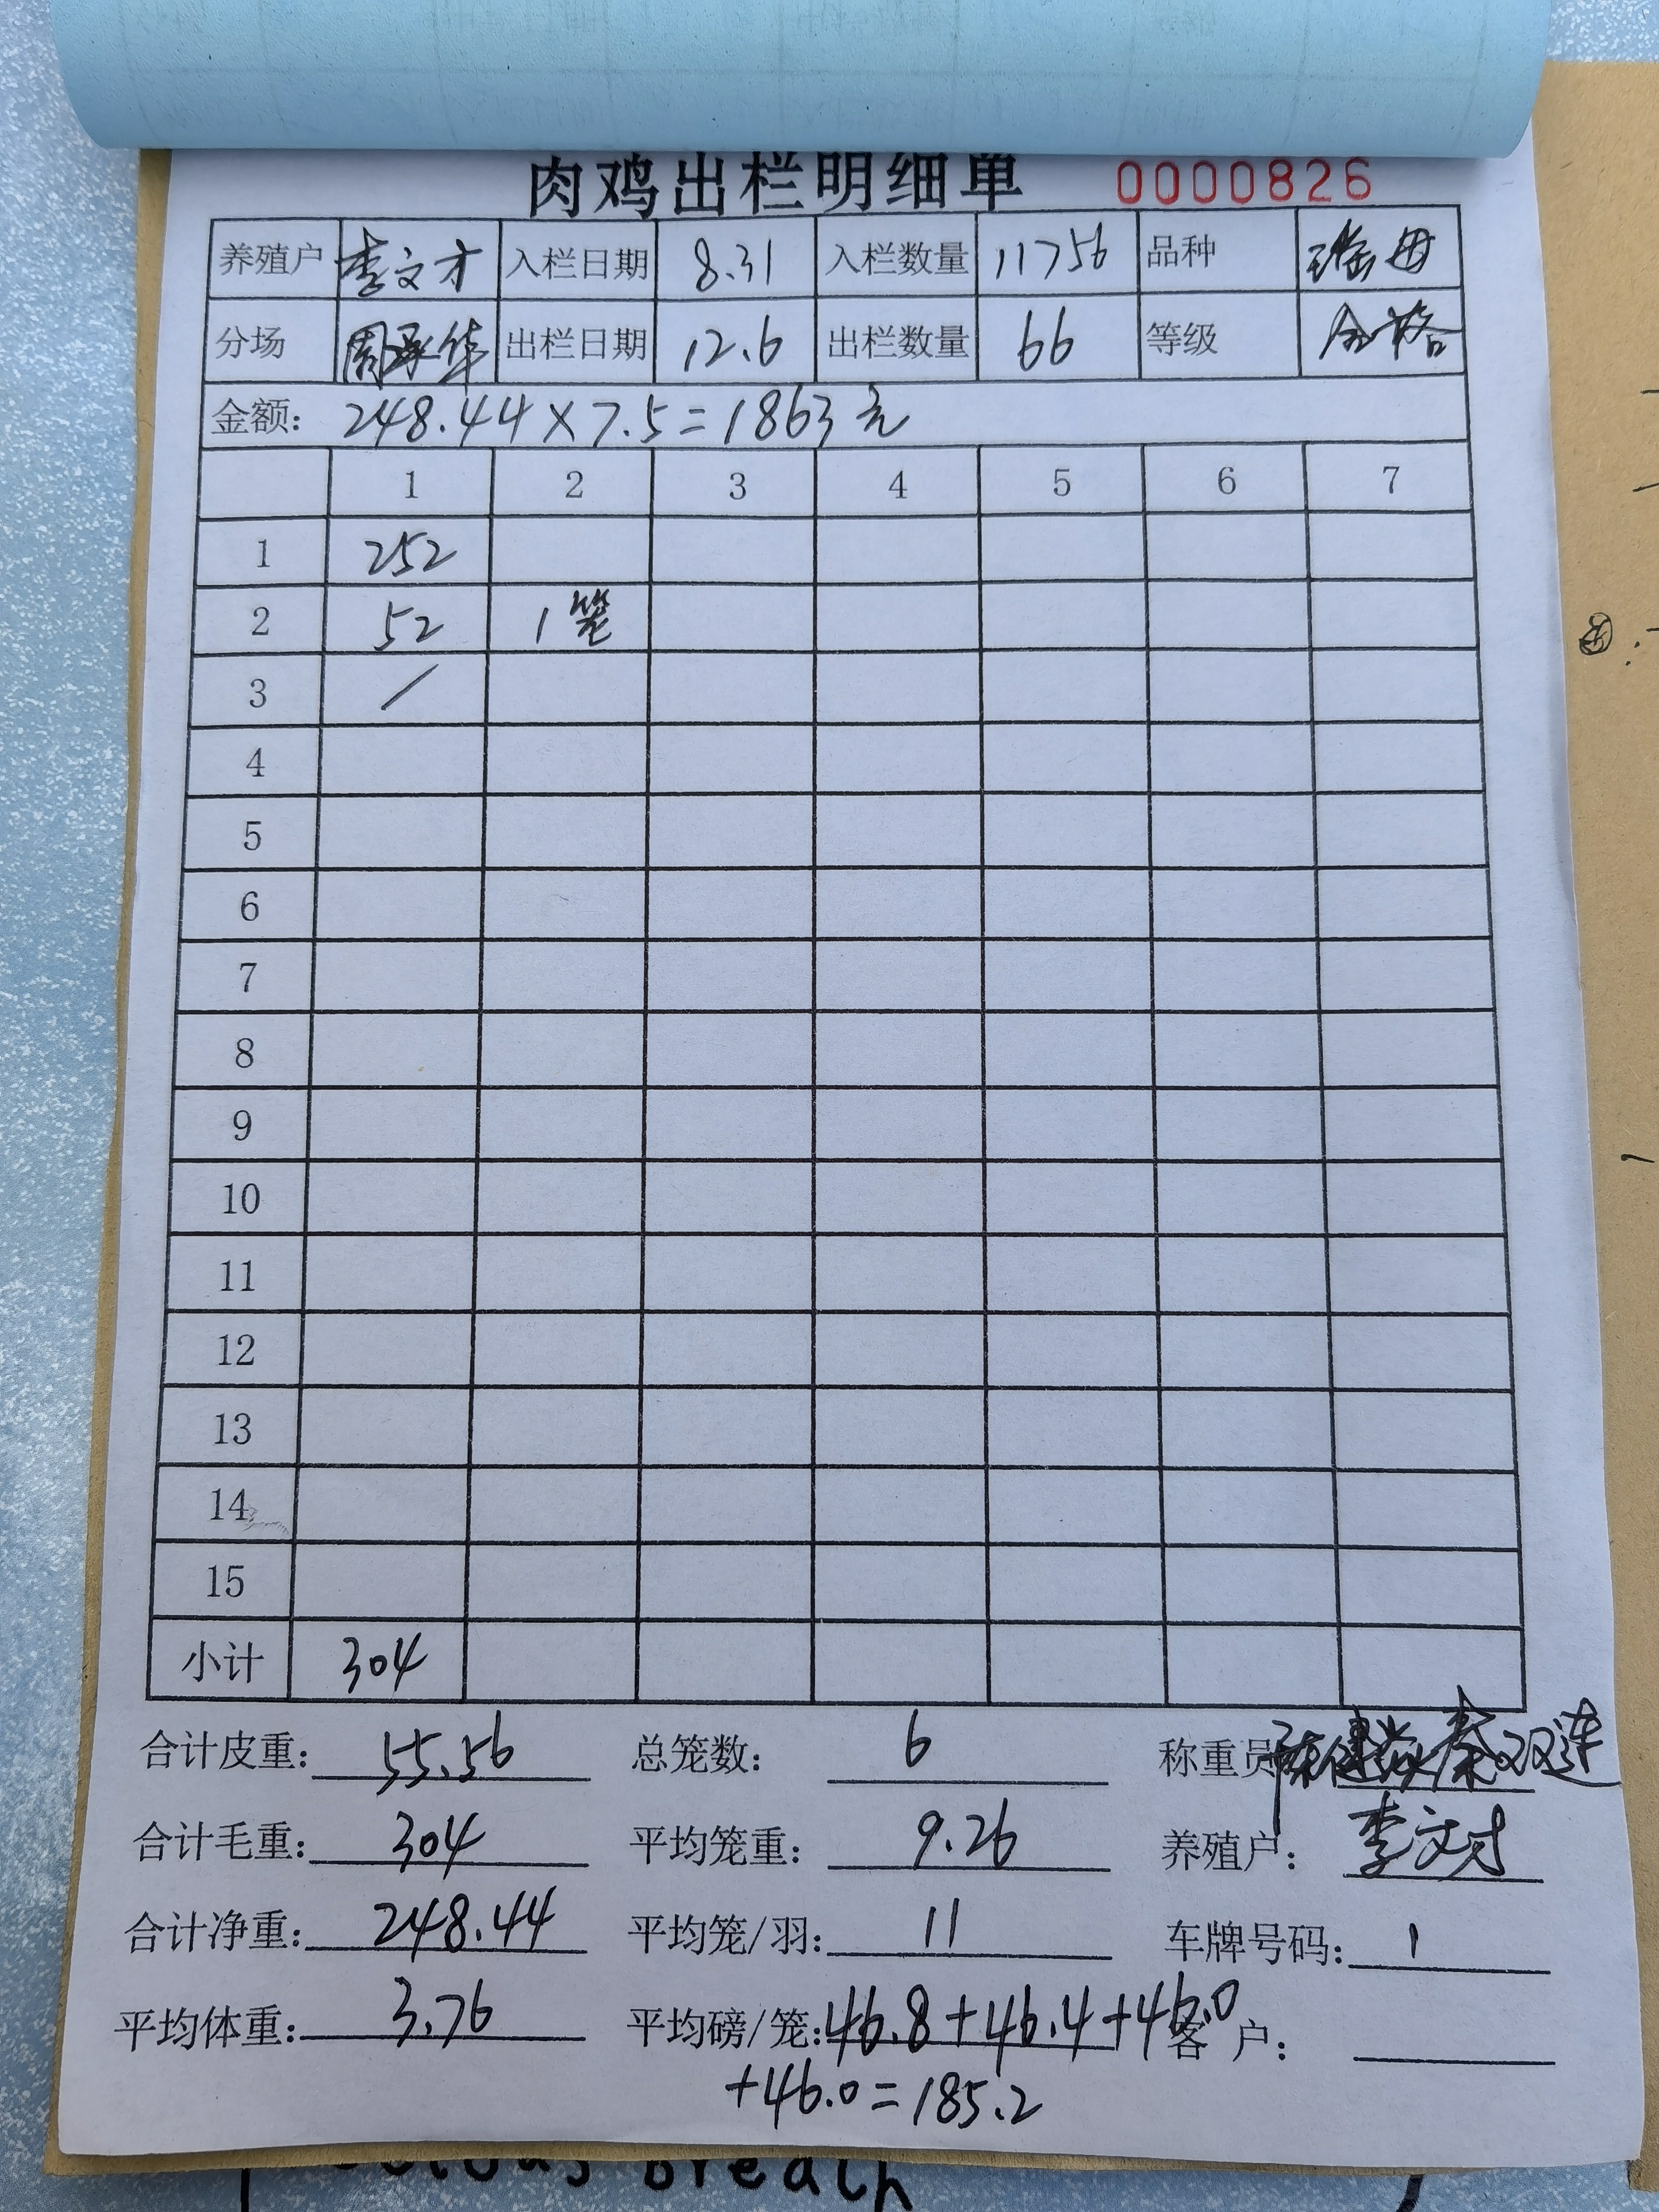 肉鸡出栏明细单 0000826
养殖户 李文才 入栏日期 8.31 入栏数量 11756 品种 瑶母
分场 周承华 出栏日期 12.6 出栏数量 66 等级 合格
金额: 248.44×7.5=1863元
1 2 3 4 5 6 7
1 252
2 52 1笼
3 /
4
5
6
7
8
9
10
11
12
13
14
15
小计 304
合计皮重: 55.56 总笼数: 6 称重员 秦双连
合计毛重: 304 平均笼重: 9.26 养殖户: 李文才
合计净重: 248.44 平均笼/羽: 11 车牌号码: 1
平均体重: 3.76 平均磅/笼: 46.8+46.4+46.0 客 户:
+46.0=185.2
breath